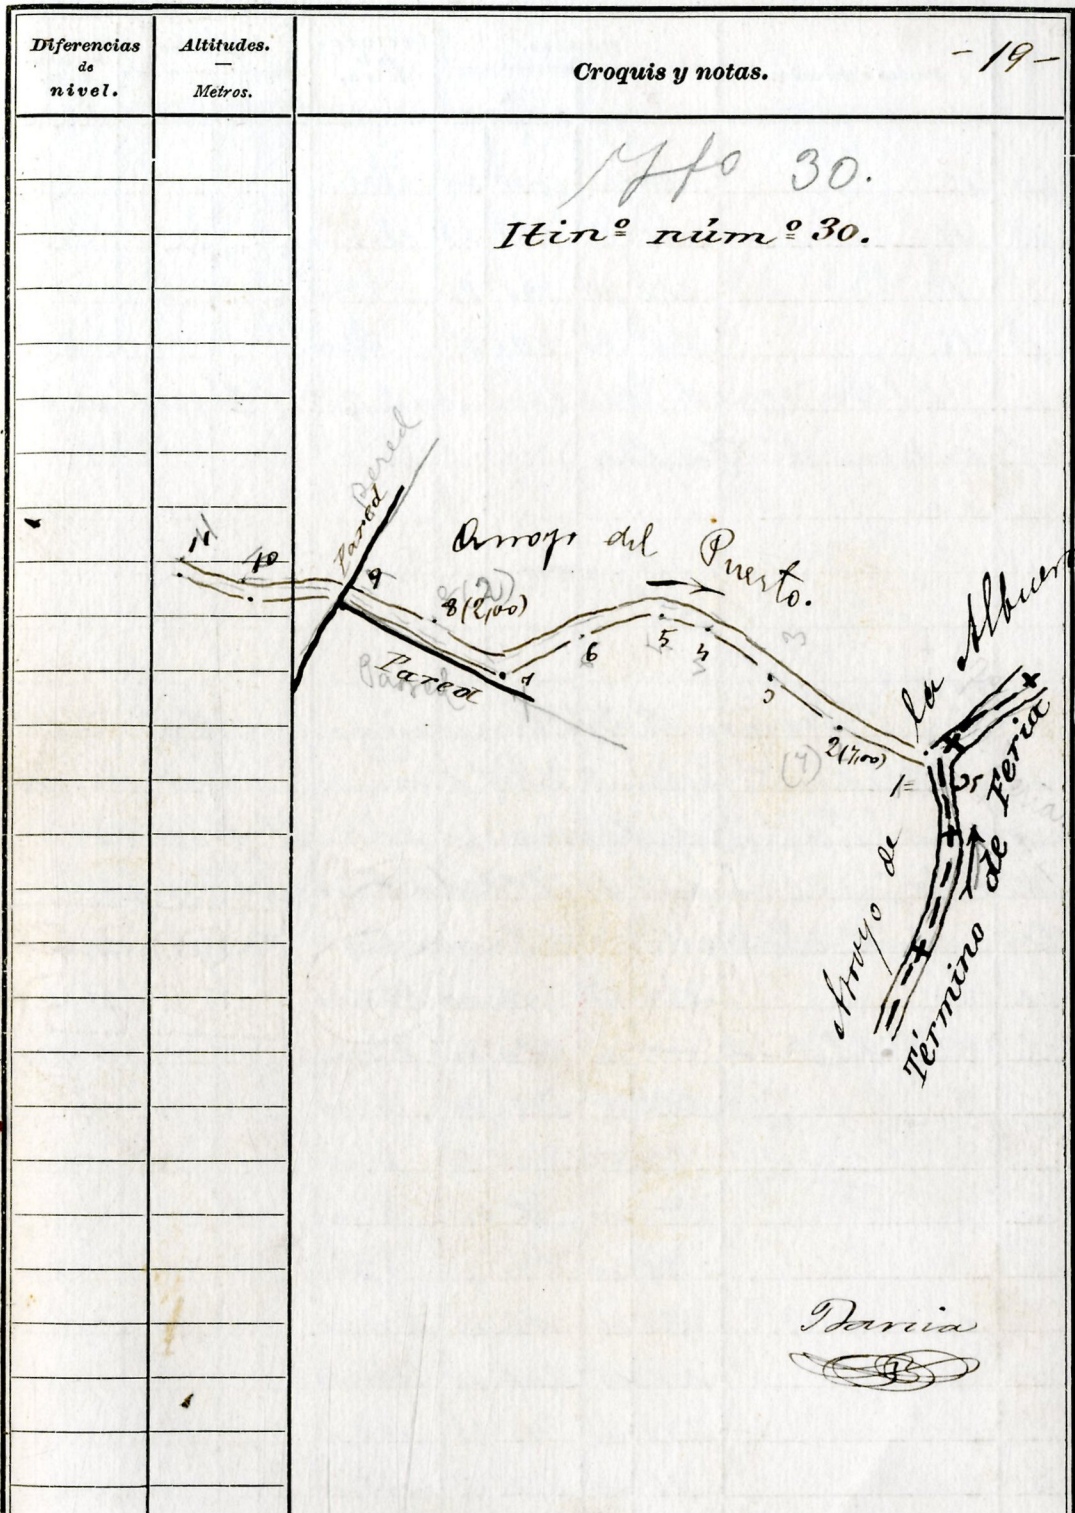 Diferencias
de
nivel.
Altitudes.
—
Metros.
Croquis y notas.
- 19 -
30.
Itinº númº 30.
Pared
Pared
Arroyo del Puerto.
11
10
9
8 (2)
8 (2,00)
7
6
5
4
3
3
2 (7,00)
(7)
1 =
Pared
Arroyo de la Albuera
Término de Feria